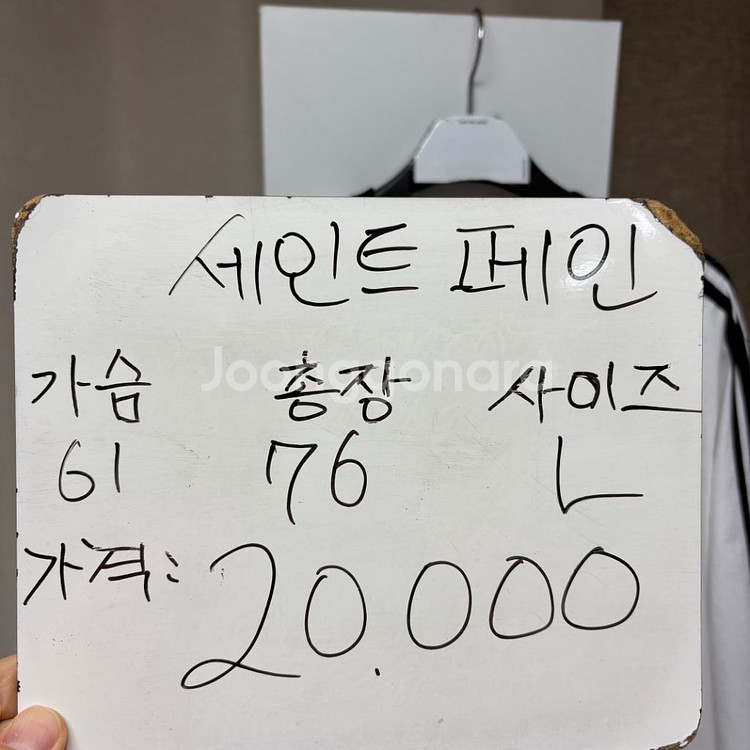 세인트 페인
가슴 총장 사이즈
61 76 L
가격: 20.000
Joonggonara